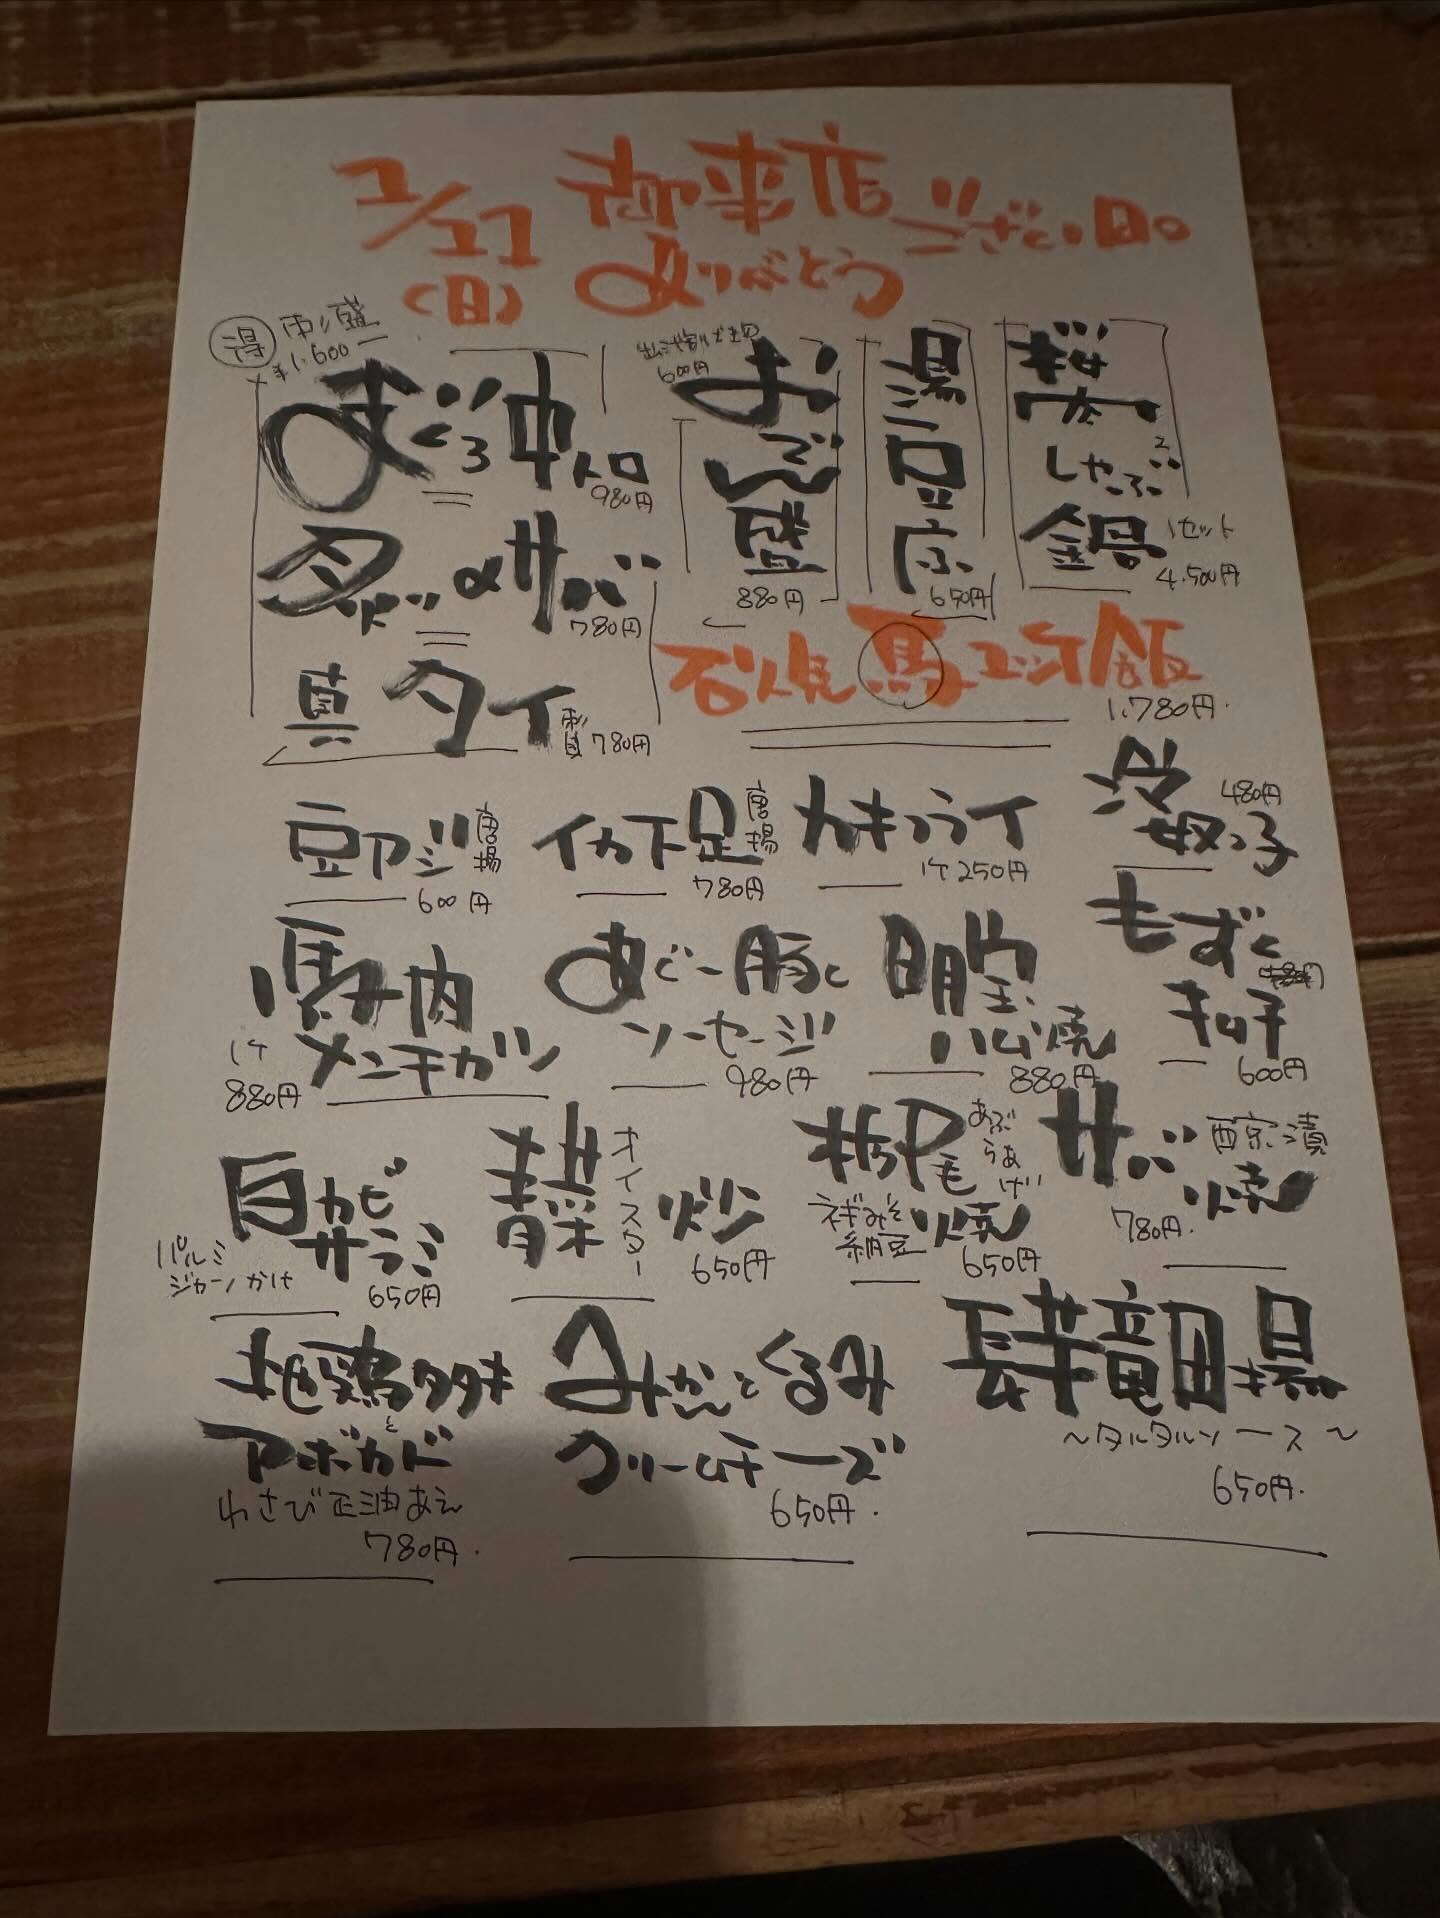 1/11
(日)
御来店
ありがとう
ございます。
得 刺し盛
¥1,600
まぐろ中トロ
980円
〆サバ
780円
真タイ 刺身 780円
出汁割り
600円
おでん盛
880円
湯豆腐
650円
桜しゃぶ鍋
1セット
4,500円
石焼馬ユッケ飯
1,780円.
豆アジ 唐揚
600円
イカ下足 唐揚
780円
カキフライ
1ケ250円
冷奴っ子
480円
馬肉
メンチカツ
1ケ
880円
あぐー豚
ソーセージ
980円
明宝
ハム焼
880円
もずく
600円
白カビ
サラミ
パルミ
ジャーノかけ
650円
青菜 オイスター 炒
650円
栃尾 あぶらあげ
ネギみそ
納豆
焼
650円
サバ 西京漬
焼
780円.
地鶏タタキ
と
アボカド
わさび正油あえ
780円.
みかんとくるみ
クリームチーズ
650円.
揚
〜タルタルソース〜
650円.